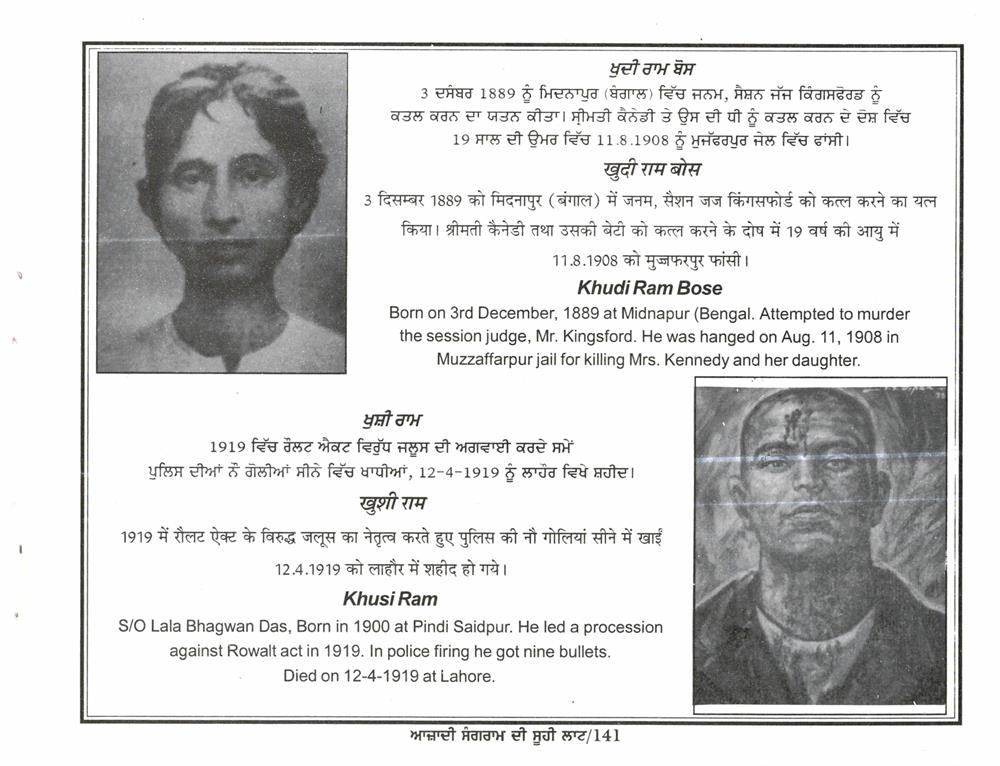 ਖੁਦੀ ਰਾਮ ਬੋਸ
3 ਦਸੰਬਰ 1889 ਨੂੰ ਮਿਦਨਾਪੁਰ (ਬੰਗਾਲ) ਵਿੱਚ ਜਨਮ, ਸੈਸ਼ਨ ਜੱਜ ਕਿੰਗਸਫੋਰਡ ਨੂੰ
ਕਤਲ ਕਰਨ ਦਾ ਯਤਨ ਕੀਤਾ। ਸ੍ਰੀਮਤੀ ਕੈਨੇਡੀ ਤੇ ਉਸ ਦੀ ਧੀ ਨੂੰ ਕਤਲ ਕਰਨ ਦੇ ਦੋਸ਼ ਵਿੱਚ
19 ਸਾਲ ਦੀ ਉਮਰ ਵਿੱਚ 11.8.1908 ਨੂੰ ਮੁਜੱਫਰਪੁਰ ਜੇਲ ਵਿੱਚ ਫਾਂਸੀ।
खुदी राम बोस
3 दिसम्बर 1889 को मिदनापुर (बंगाल) में जनम, सैशन जज किंगसफोर्ड को कत्ल करने का यत्न
किया। श्रीमती कैनेडी तथा उसकी बेटी को कत्ल करने के दोष में 19 वर्ष की आयु में
11.8.1908 को मुज्जफरपुर फांसी।
Khudi Ram Bose
Born on 3rd December, 1889 at Midnapur (Bengal. Attempted to murder
the session judge, Mr. Kingsford. He was hanged on Aug. 11, 1908 in
Muzzaffarpur jail for killing Mrs. Kennedy and her daughter.
ਖੁਸ਼ੀ ਰਾਮ
1919 ਵਿੱਚ ਰੌਲਟ ਐਕਟ ਵਿਰੁੱਧ ਜਲੂਸ ਦੀ ਅਗਵਾਈ ਕਰਦੇ ਸਮੇਂ
ਪੁਲਿਸ ਦੀਆਂ ਨੌਂ ਗੋਲੀਆਂ ਸੀਨੇ ਵਿੱਚ ਖਾਧੀਆਂ, 12-4-1919 ਨੂੰ ਲਾਹੌਰ ਵਿਖੇ ਸ਼ਹੀਦ।
खुशी राम
1919 में रौलट ऐक्ट के विरुद्ध जलूस का नेतृत्व करते हुए पुलिस की नौ गोलियां सीने में खाईं
12.4.1919 को लाहौर में शहीद हो गये।
Khusi Ram
S/O Lala Bhagwan Das, Born in 1900 at Pindi Saidpur. He led a procession
against Rowalt act in 1919. In police firing he got nine bullets.
Died on 12-4-1919 at Lahore.
ਆਜ਼ਾਦੀ ਸੰਗਰਾਮ ਦੀ ਸੂਹੀ ਲਾਟ/141